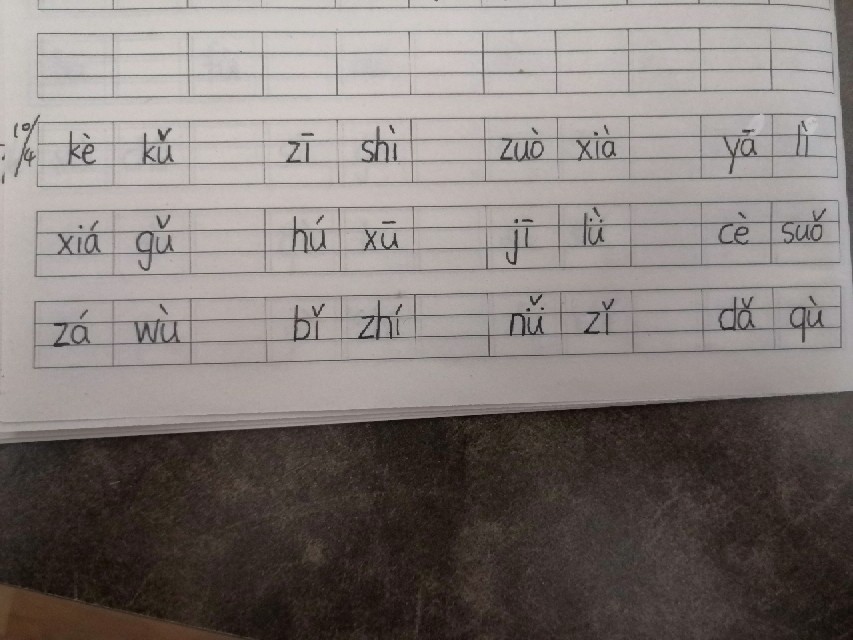 10/4 kè kǔ zī shì zuò xià yā lì
xiá gǔ hú xū jī lǜ cè suǒ
zá wù bǐ zhí nǚ zǐ dǎ qù